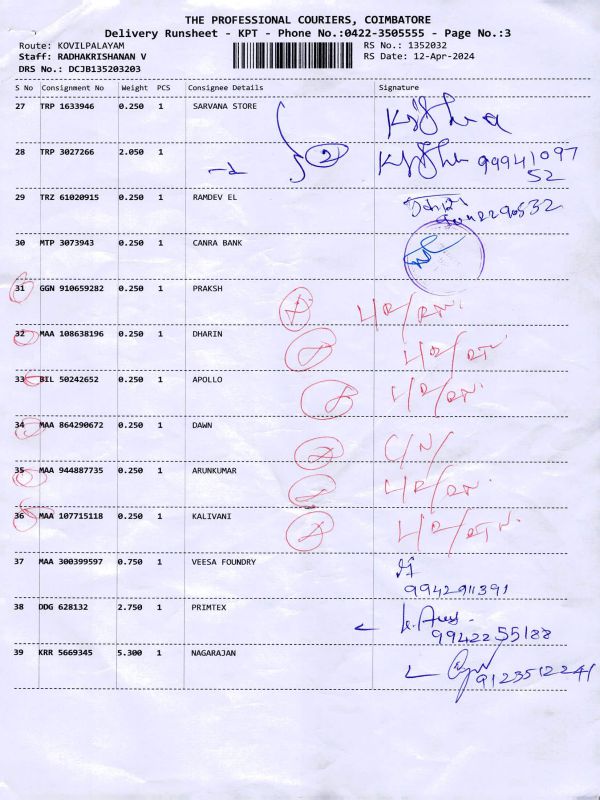 THE PROFESSIONAL COURIERS, COIMBATORE
Delivery Runsheet - KPT - Phone No.:0422-3505555 - Page No.:3
Route: KOVILPALAYAM RS No.: 1352032
Staff: RADHAKRISHANAN V RS Date: 12-Apr-2024
DRS No.: DCJB135203203
S No Consignment No Weight PCS Consignee Details Signature
27 TRP 1633946 0.250 1 SARVANA STORE
28 TRP 3027266 2.050 1 2 99941097
52
29 TRZ 61020915 0.250 1 RAMDEV EL
30 MTP 3073943 0.250 1 CANRA BANK
31 GGN 910659282 0.250 1 PRAKSH
32 MAA 108638196 0.250 1 DHARIN
33 BIL 50242652 0.250 1 APOLLO
34 MAA 864290672 0.250 1 DAWN C/N/
35 MAA 944887735 0.250 1 ARUNKUMAR
36 MAA 107715118 0.250 1 KALIVANI
37 MAA 300399597 0.750 1 VEESA FOUNDRY
9942911391
38 DDG 628132 2.750 1 PRIMTEX
9942255188
39 KRR 5669345 5.300 1 NAGARAJAN
9123512241